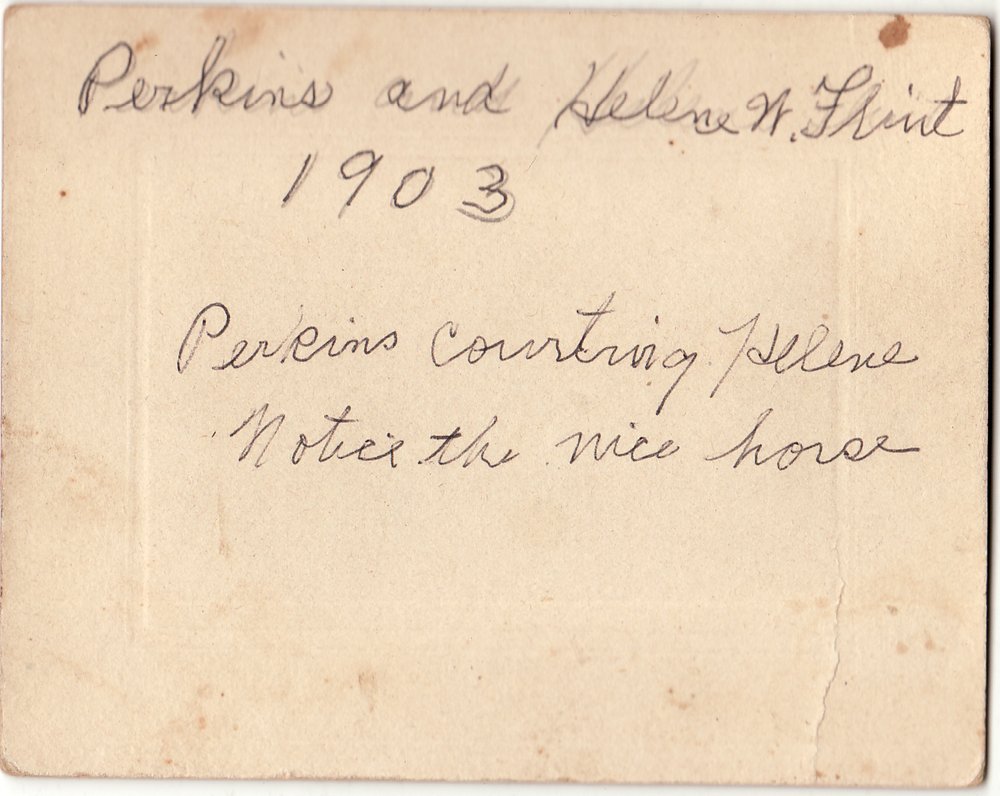 Perkins and Helene W. Flint
1903
Perkins courting Helene
Notice the nice horse